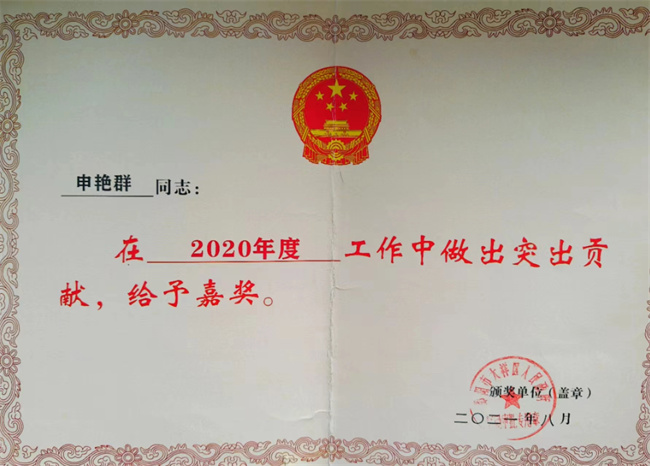 申艳群同志：
在 2020年度 工作中做出突出贡
献，给予嘉奖。
颁奖单位（盖章）
二〇二一年八月